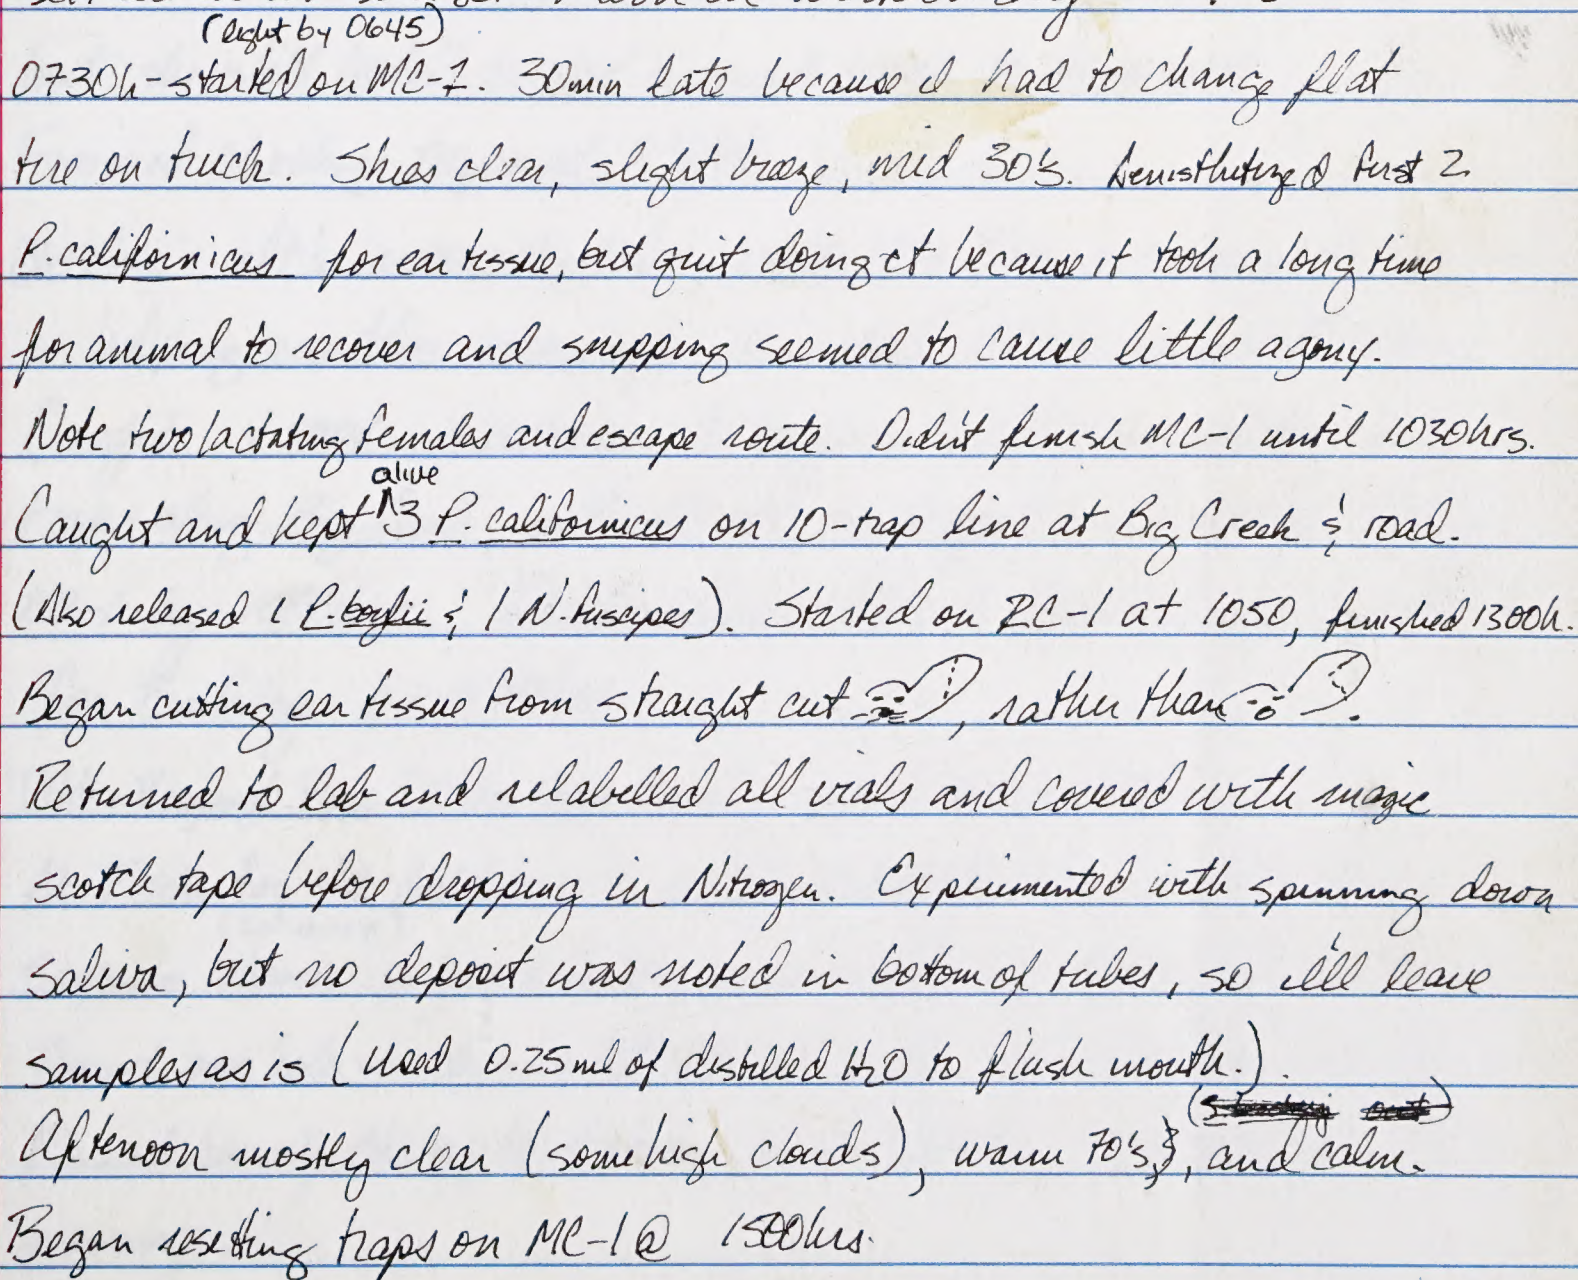 (light by 0645)
0730h - started on MC-1. 30min late because I had to change flat
tire on truck. Skies clear, slight breeze, mid 30's. first 2
P. californicus for ear tissue, but quit doing it because it took a long time
for animal to recover and snipping seemed to cause little agony.
Note two lactating females and escape route. Didn't finish MC-1 until 1030hrs.
alive
Caught and kept ^ 3 P. californicus on 10-trap line at Big Creek & road.
(Also released 1 P. boylii & 1 N. fuscipes). Started on RC-1 at 1050, finished 1300h.
Began cutting ear tissue from straight cut , rather than .
Returned to lab and relabelled all vials and covered with magic
scotch tape before dropping in Nitrogen. Experimented with spinning down
saliva, but no deposit was noted in bottom of tubes, so I'll leave
samples as is (used 0.25ml of distilled H2O to flush mouth.).
Afternoon mostly clear (some high clouds), warm 70's, and calm.
Began resetting traps on MC-1 @ 1500hrs.